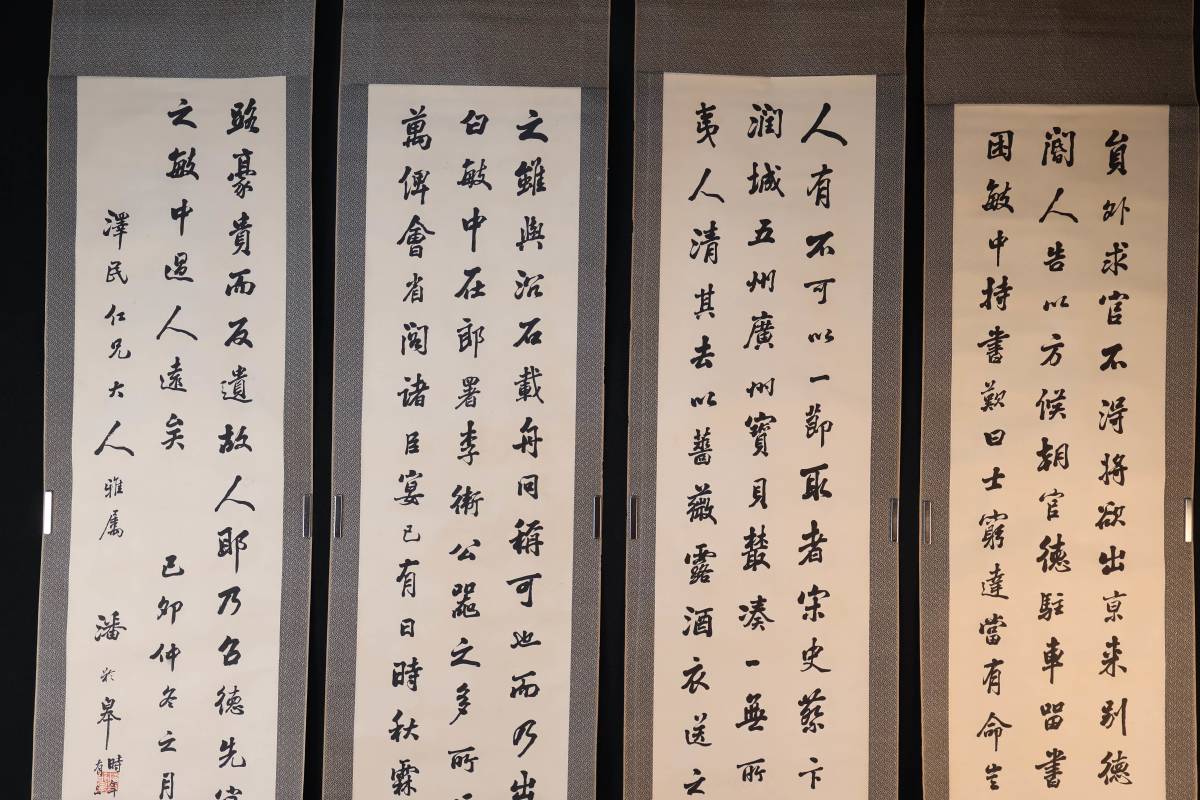 員外求官不得將欲出京来别德
閽人告以方候朝官德駐車留書
困敏中持書歎曰士窮達當有命豈
人有不可以一節取者宋史蔡卞
潤城五州廣州寳貝叢湊一無所
夷人清其去以薔薇露酒衣送之
之雖與沿石載舟同稱可也而乃出
白敏中在郎署李衛公器之多所
萬俾會省閣諸臣宴已有日時秋霖
路豪貴而反遺故人耶乃召德先
之敏中過人遠矣 己卯仲冬之月
澤民仁兄大人雅属 潘龄皋時年